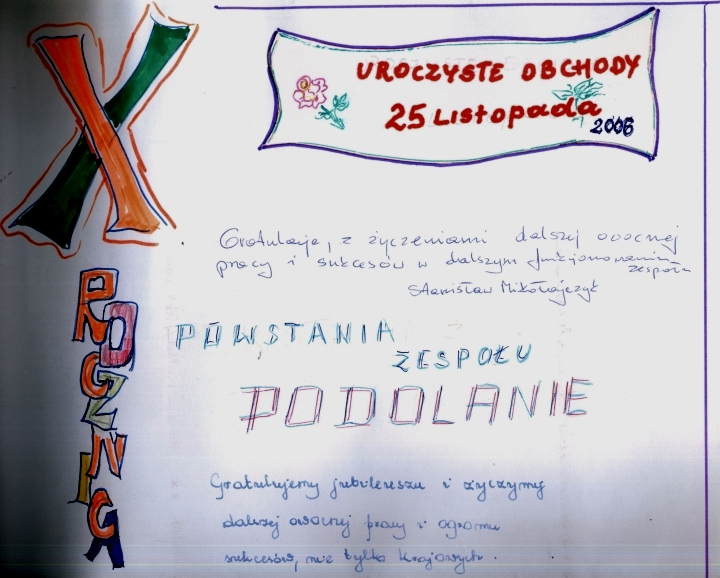 X
ROCZNICA
UROCZYSTE OBCHODY
25 Listopada
2006
Gratulacje, z życzeniami dalszej owocnej
pracy i sukcesów w dalszym funkcjonowaniu
zespołu
Stanisław Mikołajczyk
POWSTANIA
ZESPOŁU
PODOLANIE
Gratulujemy jubileuszu i życzymy
dalszej owocnej pracy i ogromu
sukcesów, nie tylko krajowych.